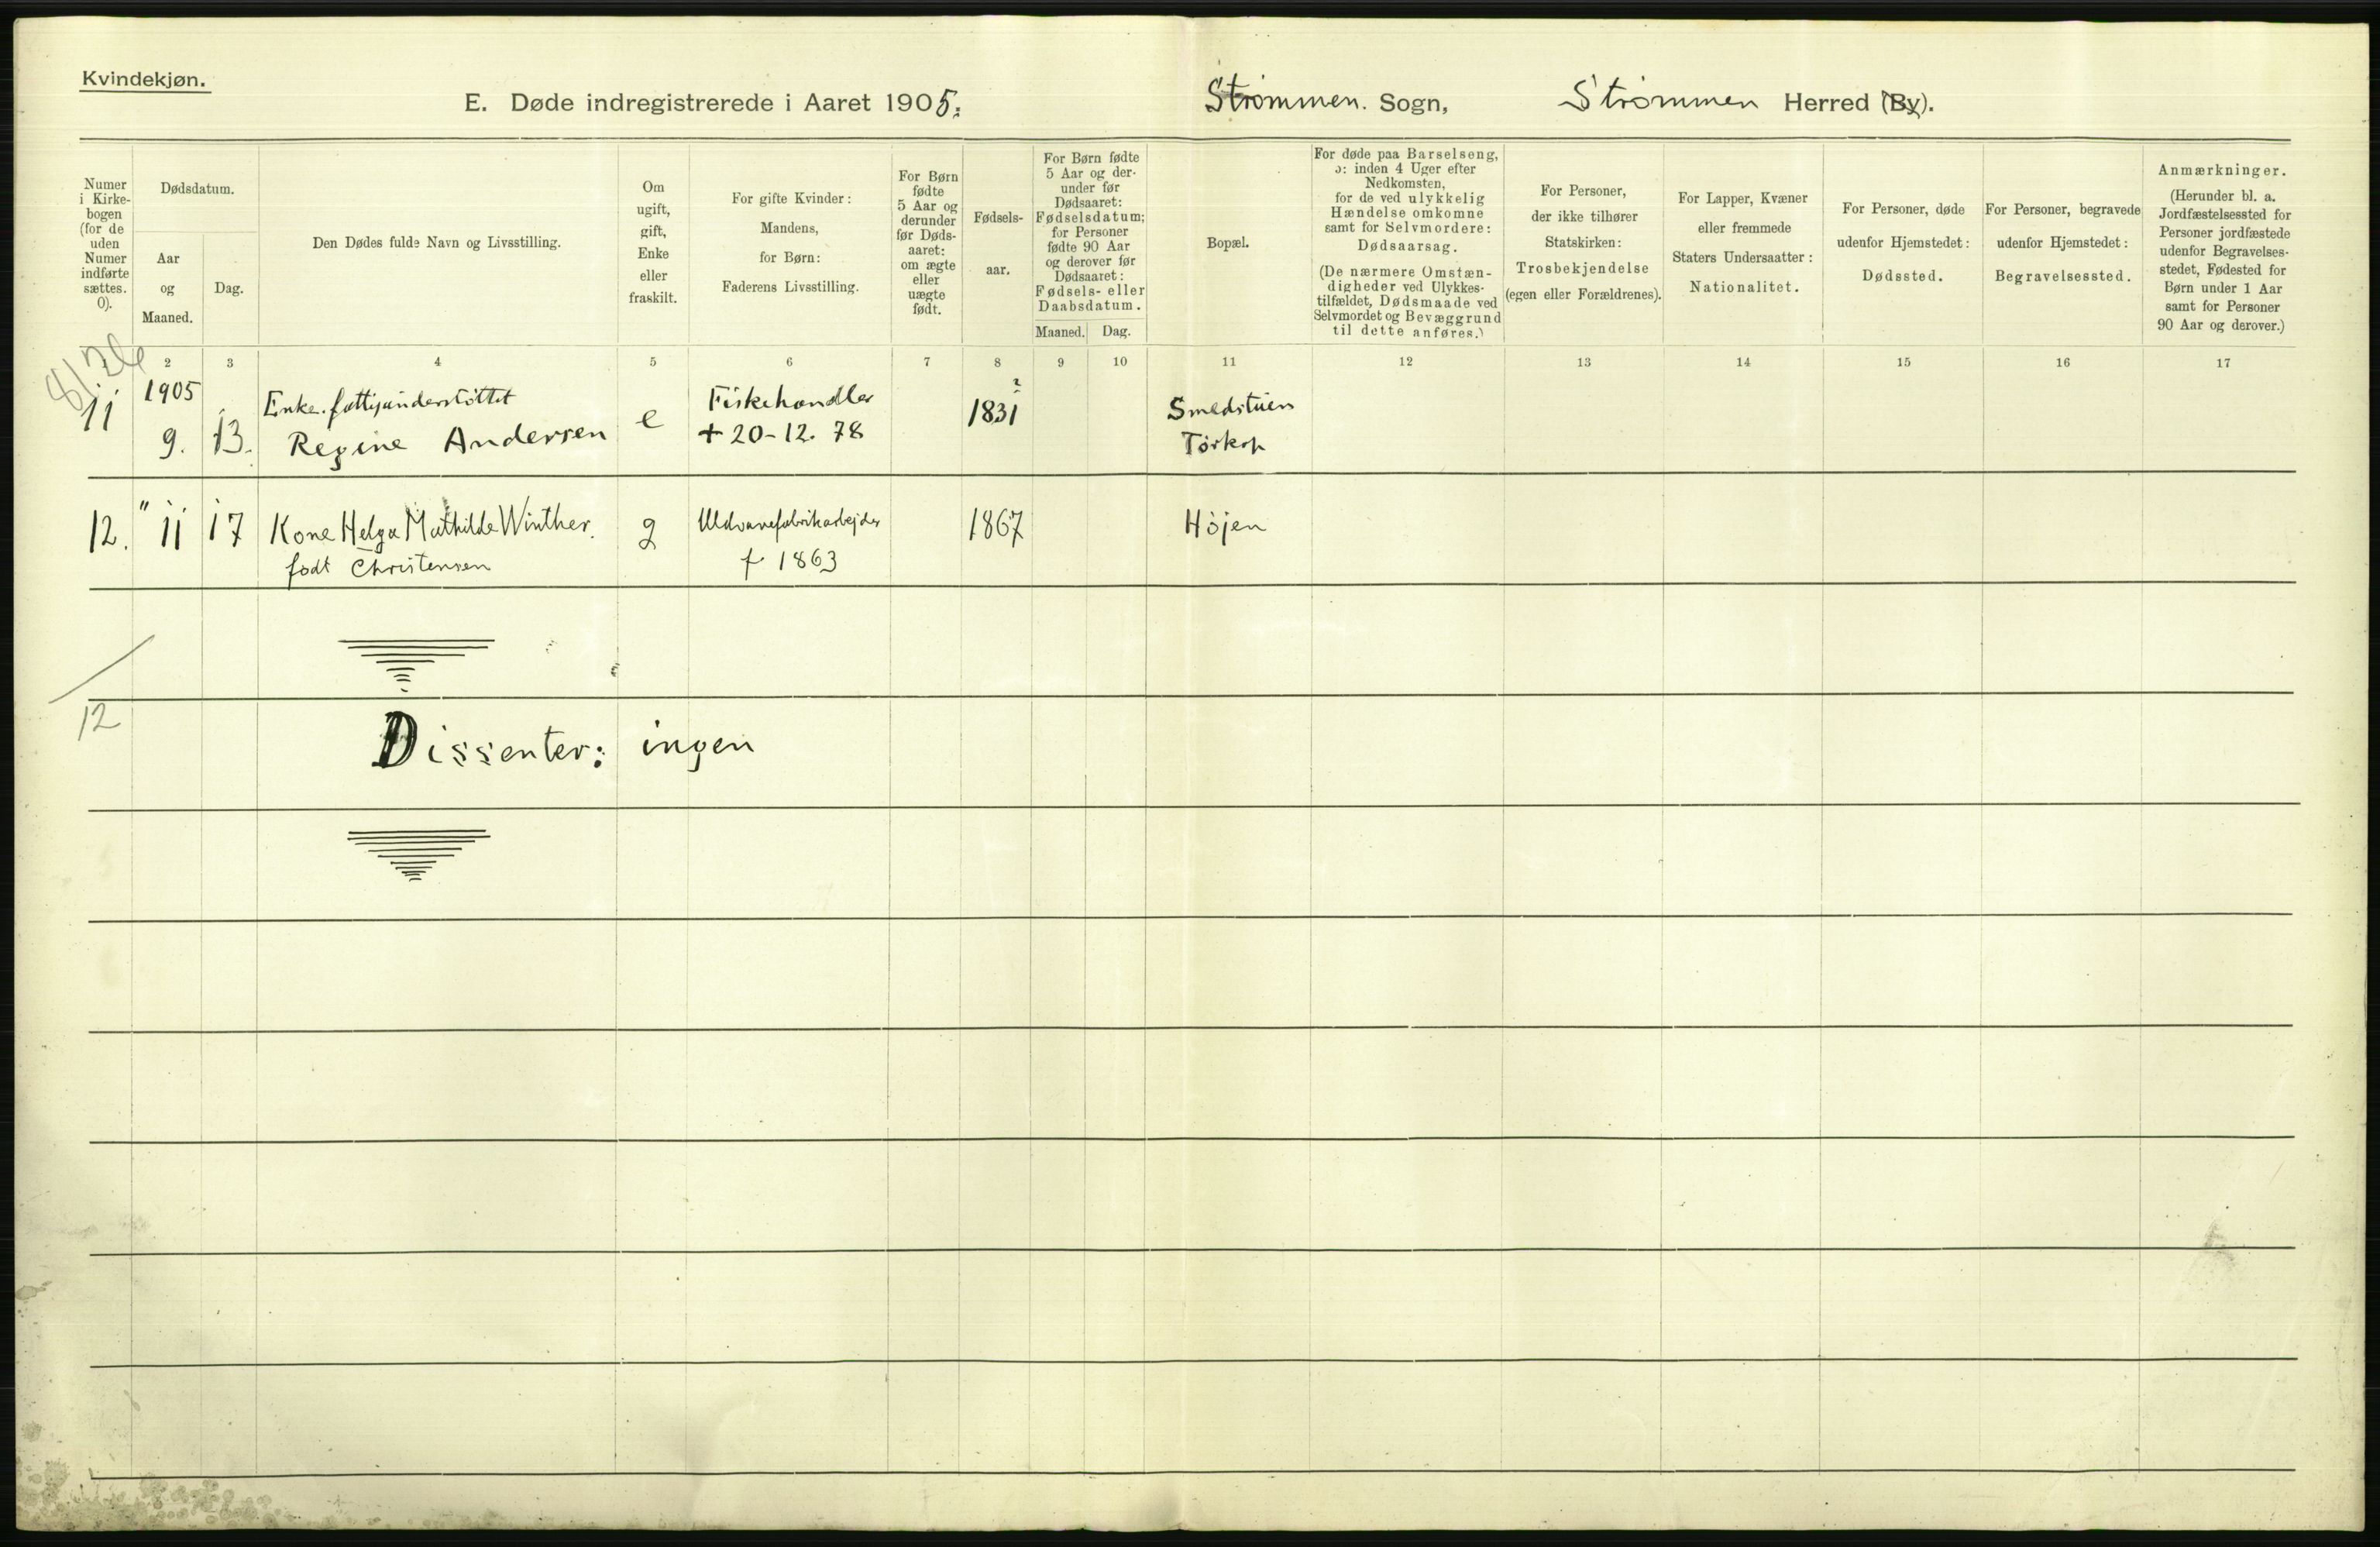 Kvindekjøn.
E. Døde indregistrerede i Aaret 1905.
Strømmen. Sogn, Strømmen Herred (By).
Numer
i Kirke-
bogen
(for de
uden
Numer
indførte
sættes.
0).
Dødsdatum.
Aar
og
Maaned.
Dag.
Den Dødes fulde Navn og Livsstilling.
Om
ugift,
gift,
Enke
eller
fraskilt.
For gifte Kvinder:
Mandens,
for Børn:
Faderens Livsstilling.
For Børn
fødte
5 Aar og
derunder
før Døds-
aaret:
om ægte
eller
uægte
født.
Fødsels-
aar.
For Børn fødte
5 Aar og der-
under før
Dødsaaret:
Fødselsdatum;
for Personer
fødte 90 Aar
og derover før
Dødsaaret:
Fødsels- eller
Daabsdatum.
Maaned. Dag.
Bopæl.
For døde paa Barselseng,
ɔ: inden 4 Uger efter
Nedkomsten,
for de ved ulykkelig
Hændelse omkomne
samt for Selvmordere:
Dødsaarsag.
(De nærmere Omstæn-
digheder ved Ulykkes-
tilfældet, Dødsmaade ved
Selvmordet og Bevæggrund
til dette anføres.)
For Personer,
der ikke tilhører
Statskirken:
Trosbekjendelse
(egen eller Forældrenes).
For Lapper, Kvæner
eller fremmede
Staters Undersaatter:
Nationalitet.
For Personer, døde
udenfor Hjemstedet:
Dødssted.
For Personer, begravede
udenfor Hjemstedet:
Begravelsessted.
Anmærkninger.
(Herunder bl. a.
Jordfæstelsessted for
Personer jordfæstede
udenfor Begravelses-
stedet, Fødested for
Børn under 1 Aar
samt for Personer
90 Aar og derover.)
2 3 4 5 6 7 8 9 10 11 12 13 14 15 16 17
11 1905
9. 13. Enke. fattigunderstøttet
Regine Andersen e Fiskehandler
+ 20-12. 78 1831 ? Smedstuen
Tørkop
12. " 11 17 Kone Helga Mathilde Winther.
født Christensen g Uldvarefabrikarbejder
f 1863 1867 Højen
12
Dissenter: ingen